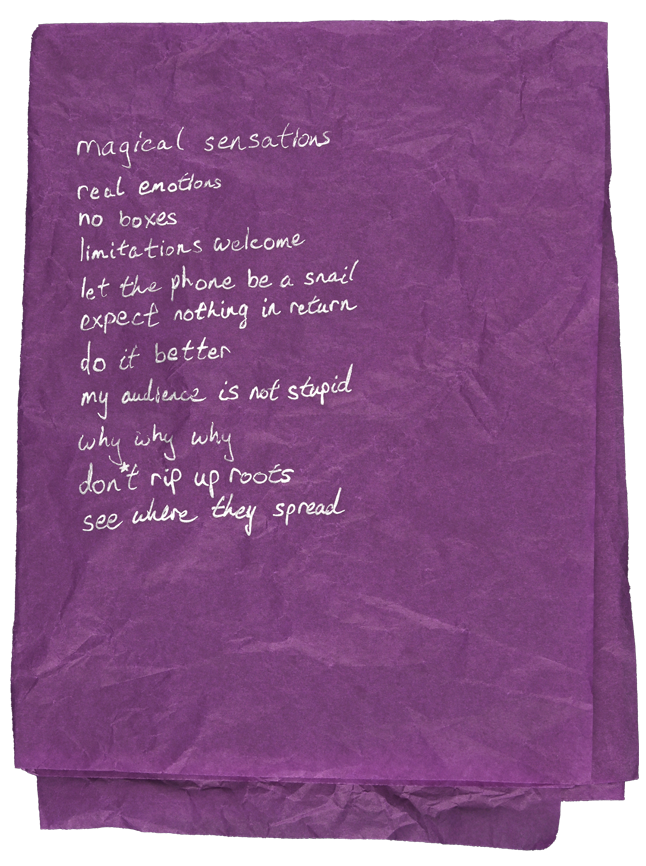 magical sensations
real emotions
no boxes
limitations welcome
let the phone be a snail
expect nothing in return
do it better
my audience is not stupid
why why why
don't rip up roots
see where they spread